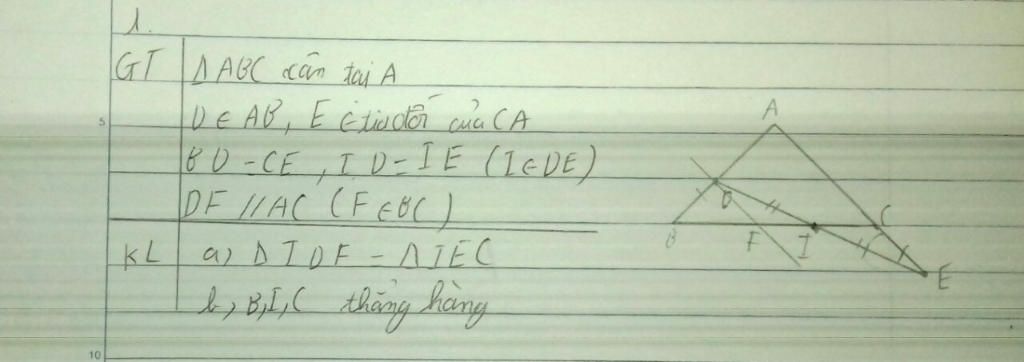 1.
GT ΔABC cân tại A
D ∈ AB, E ∈ tia đối của CA
BD = CE, ID = IE (I ∈ DE)
DF // AC (F ∈ BC)
KL a) ΔIDF = ΔIEC
b, B, I, C thẳng hàng
A
D
B F I C
E
5
10